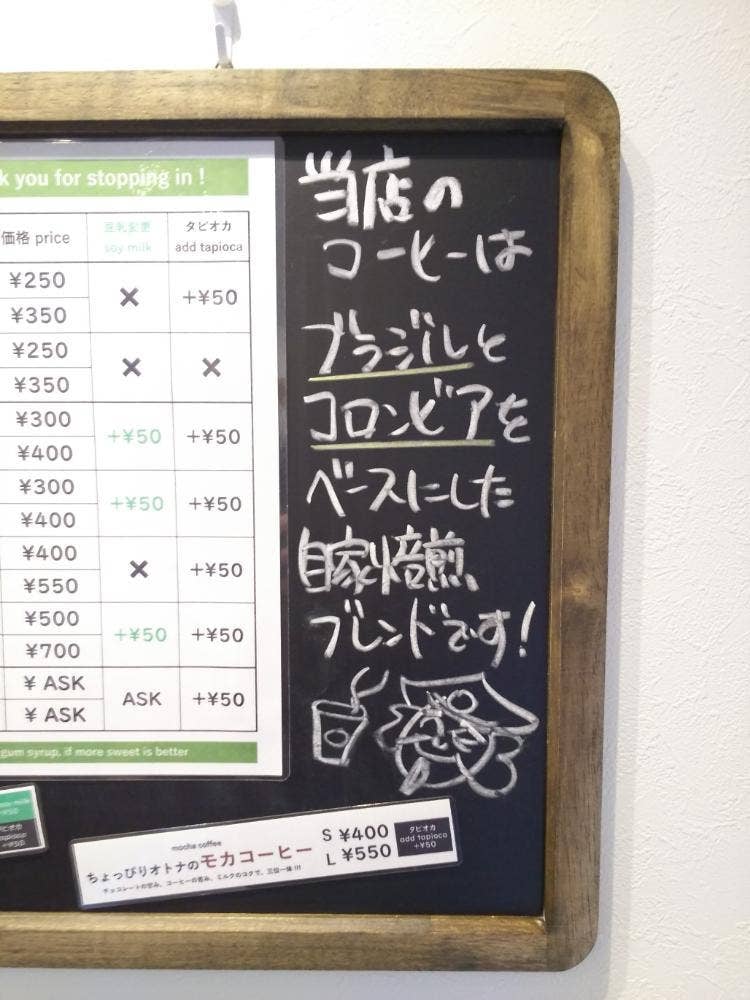 k you for stopping in !
価格 price 豆乳変更 soy milk タピオカ add tapioca
¥250 × +¥50
¥350
¥250 × ×
¥350
¥300 +¥50 +¥50
¥400
¥300 +¥50 +¥50
¥400
¥400 × +¥50
¥550
¥500 +¥50 +¥50
¥700
¥ ASK ASK +¥50
¥ ASK
gum syrup, if more sweet is better
当店の
コーヒーは
ブラジルと
コロンビアを
ベースにした
自家焙煎
ブレンドです!
soy milk
+¥50
タピオカ
add tapioca
+¥50
mocha coffee
ちょっぴりオトナのモカコーヒー
チョコレートの甘み、コーヒーの苦み、ミルクのコクで、三位一体!!!
S ¥400
L ¥550
タピオカ
add tapioca
+¥50